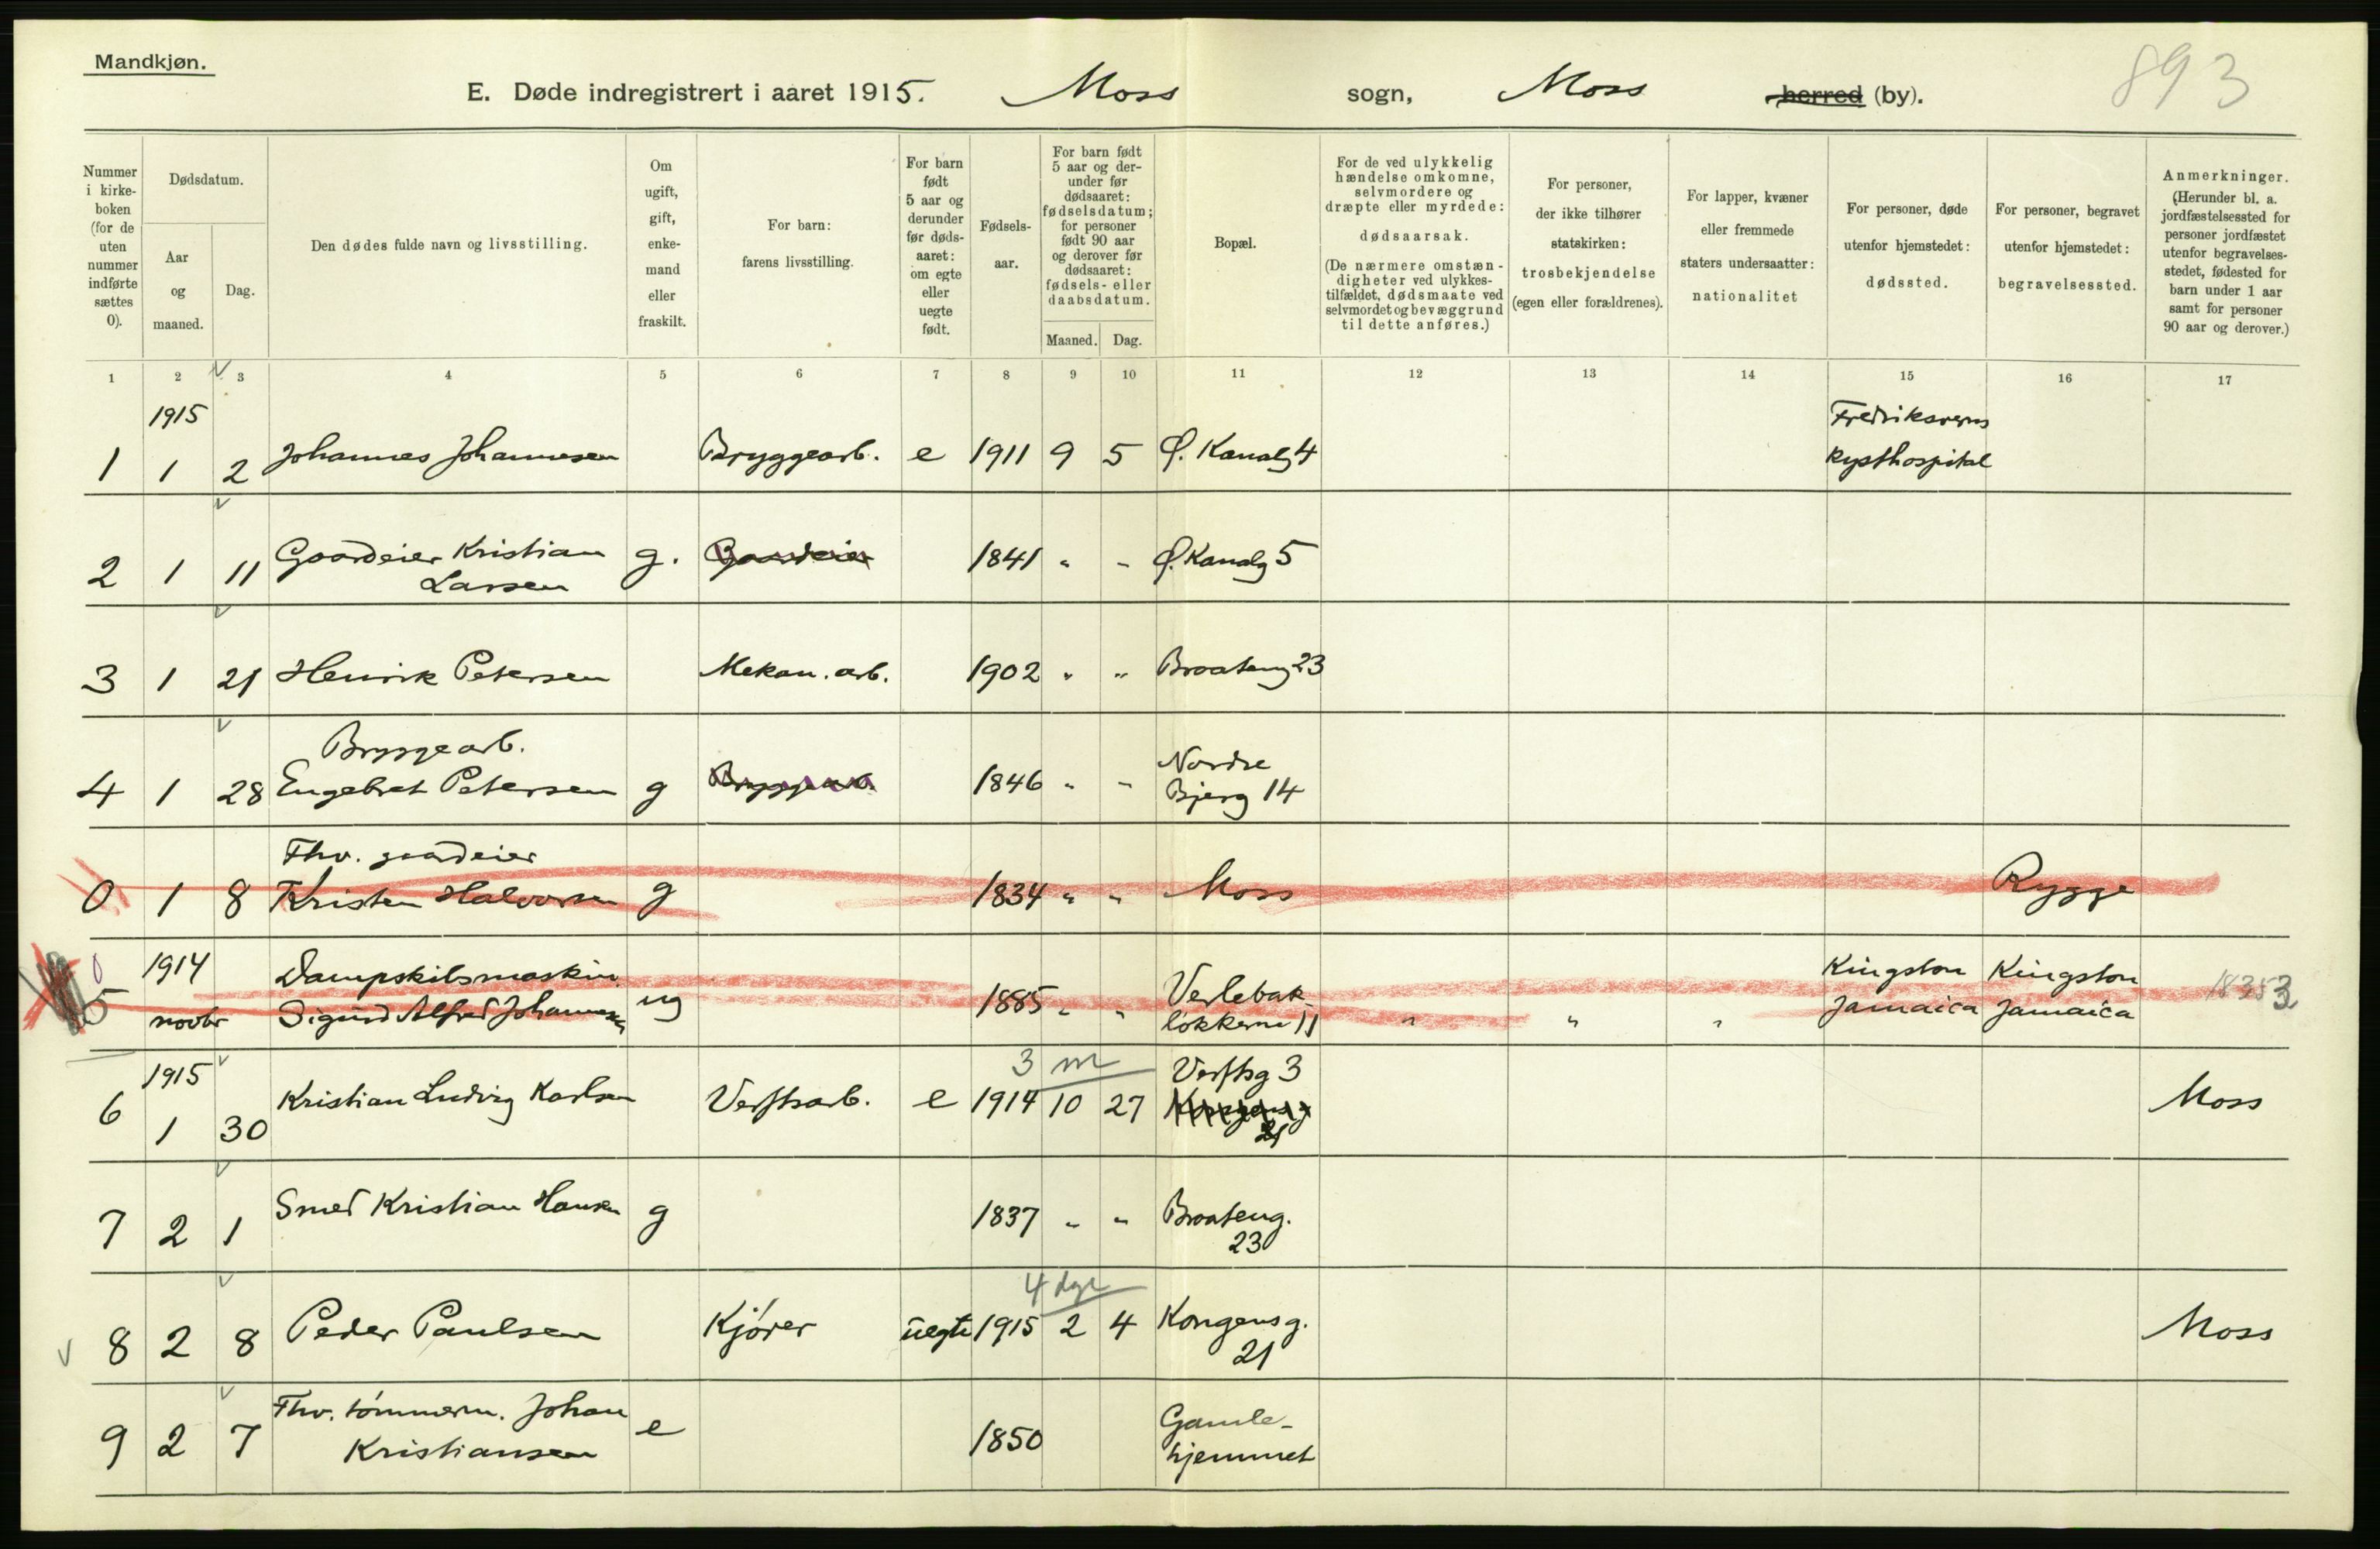 Mandkjøn.
E. Døde indregistrert i aaret 1915. Moss sogn, Moss herred (by). 893
Nummer i kirke-boken (for de uten nummer indførte sættes 0).
Dødsdatum.
Aar og maaned.
Dag.
Den dødes fulde navn og livsstilling.
Om ugift, gift, enke-mand eller fraskilt.
For barn: farens livsstilling.
For barn født 5 aar og derunder før døds-aaret: om egte eller uegte født.
Fødsels-aar.
For barn født 5 aar og der-under før dødsaaret: fødselsdatum; for personer født 90 aar og derover før dødsaaret: fødsels- eller daabsdatum.
Maaned. Dag.
Bopæl.
For de ved ulykkelig hændelse omkomne, selvmordere og dræpte eller myrdede: dødsaarsak. (De nærmere omstæn-digheter ved ulykkes-tilfældet, dødsmaate ved selvmordet og bevæggrund til dette anføres.)
For personer, der ikke tilhører statskirken: trosbekjendelse (egen eller forældrenes).
For lapper, kvæner eller fremmede staters undersaatter: nationalitet
For personer, døde utenfor hjemstedet: dødssted.
For personer, begravet utenfor hjemstedet: begravelsessted.
Anmerkninger. (Herunder bl. a. jordfæstelsessted for personer jordfæstet utenfor begravelses-stedet, fødested for barn under 1 aar samt for personer 90 aar og derover.)
1 2 3 4 5 6 7 8 9 10 11 12 13 14 15 16 17
1915 Fredriksverns
1 1 2 Johannes Johannesen Bryggearb. e 1911 9 5 Ø. Kanalg 4 Kysthospital
2 1 11 Gaardeier Kristian g. Gaardeier 1841 " " Ø. Kanalg 5
Larsen
3 1 21 Henrik Petersen Mekan. arb. 1902 " " Braateng 23
Bryggearb. Nordre
4 1 28 Engebret Petersen g Bryggearb. 1846 " " Bjerg 14
Fhv. gaardeier
0 1 8 Kristen Halvorsen g 1834 " " Moss Rygge
0 1914 Dampskibsmaskin. Verlebak- Kingston Kingston
5 novbr Sigurd Alfred Johannesen ug 1885 " " løkkerne 11 " " " Jamaica Jamaica
1915 3 m Verftsg 3
6 1 30 Kristian Ludvig Karlsen Verftsarb. e 1914 10 27 Kongensg Moss
21
7 2 1 Smed Kristian Hansen g 1837 " " Braateng.
23
4 dge
8 2 8 Peder Paulsen Kjører uegte 1915 2 4 Kongensg. Moss
21
Fhv. tømmerm. Johan Gamle-
9 2 7 Kristiansen e 1850 hjemmet